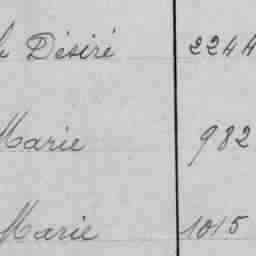 Désiré 2244
Marie 982
Marie 1015